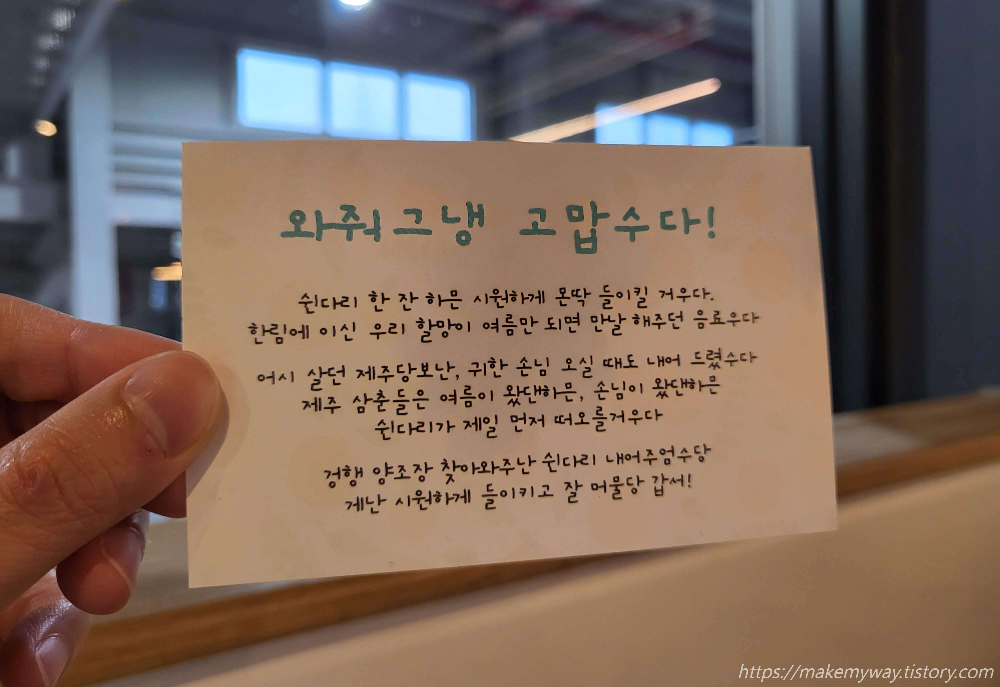 와줘그냉 고맙수다!
쉰다리 한 잔 하믄 시원하게 몬딱 들이킬 거우다.
한림에 이신 우리 할망이 여름만 되면 만날 해주던 음료우다
어시 살던 제주당보난, 귀한 손님 오실 때도 내어 드렸수다
제주 삼춘들은 여름이 왔단하믄, 손님이 왔단하믄
쉰다리가 제일 먼저 떠오를거우다
경행 양조장 찾아와주난 쉰다리 내어주엄수당
게난 시원하게 들이키고 잘 머물당 갑서!
https://makemyway.tistory.com